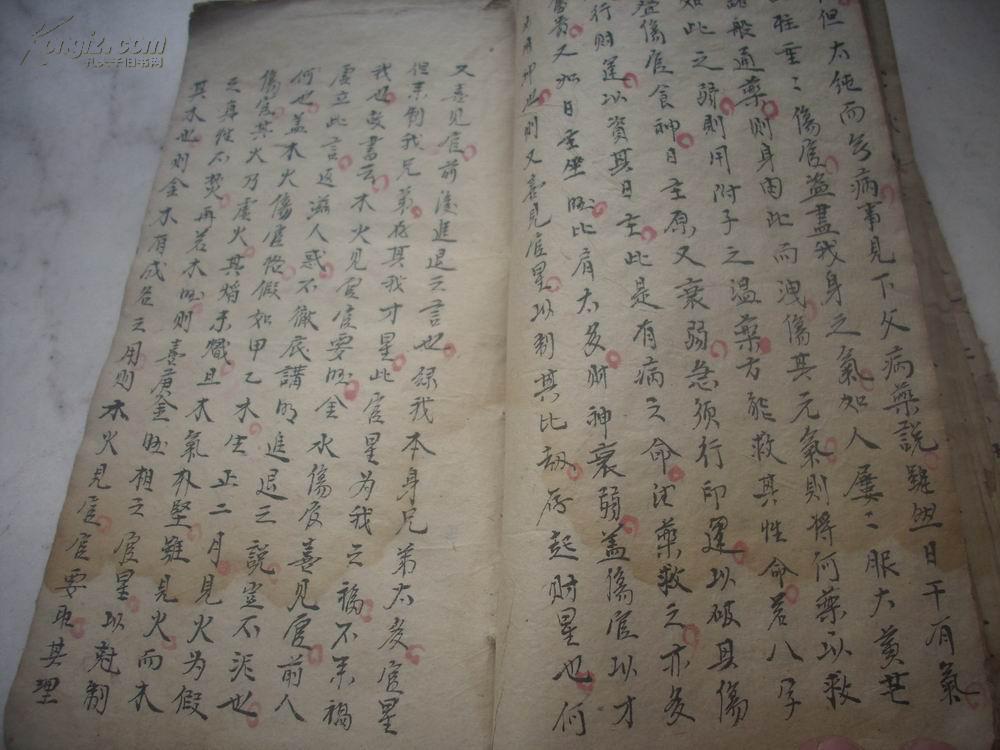 但太純而乞病書見下父病藥說雖然日干有氣
旺重重傷官盜盡我身之氣如人屢屢服大黃芒
諸般通藥則身因此而洩傷其元氣則將何藥以救
如此之弱則用附子之溫藥方能救其性命若八字
登傷官食神日主原又衰弱急須行印運以破其傷
行財運以資其日主此是有病之命法藥救之亦多
富貴又如日主坐旺比肩太多財神衰弱蓋傷官以才
卯也則又喜見官星以制其比劫存起財星也何
又喜見官前後進退之言也缘我本身兄弟太多官星
但來制我兄弟存其我才星此官星為我之福不来禍
我也故書云木火見官官要旺金水傷官喜見官前人
虛立此言返滋人惑不徹底講明進退之說豈不泥也
何也蓋木火傷官格假如甲乙木生正二月見火為假
傷官其火乃虛火其焰未熾且木氣朴堅雖見火而木
之真性不焚再若木旺則喜庚金旺相之官星以剋制
其木也則金木有成名之用則木火見官官要取其理
kongfz.com
孔夫子旧书网